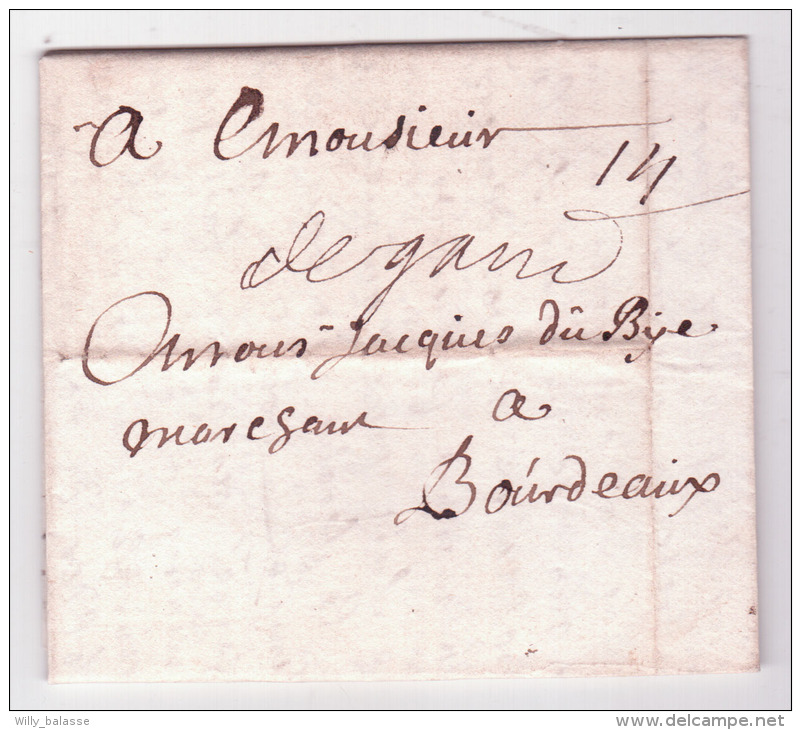 A Monsieur
14
de gand
Mons.r Jacques dú Bÿe
marchant a
Boúrdeaúx
Willy_balasse
delcampe.net